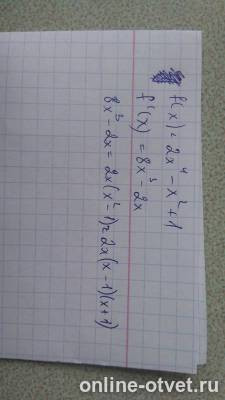 f(x) = 2x⁴ - x² + 1
f'(x) = 8x³ - 2x
8x³ - 2x = 2x(x² - 1) = 2x(x - 1)(x + 1)
online-otvet.ru